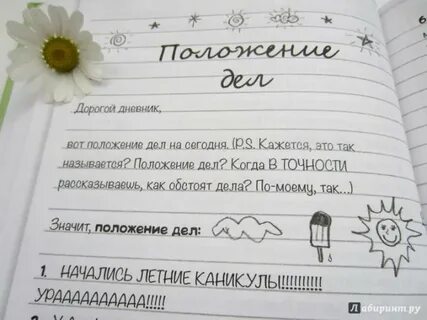 Положение
дел
Дорогой дневник,
вот положение дел на сегодня. (P.S. Кажется, это так
называется? Положение дел? Когда В ТОЧНОСТИ
рассказываешь, как обстоят дела? По-моему, так...)
Значит, положение дел:
1. НАЧАЛИСЬ ЛЕТНИЕ КАНИКУЛЫ!!!!!!!!!!!
УРАААААААААА!!!!!
2.
Лабиринт.ру